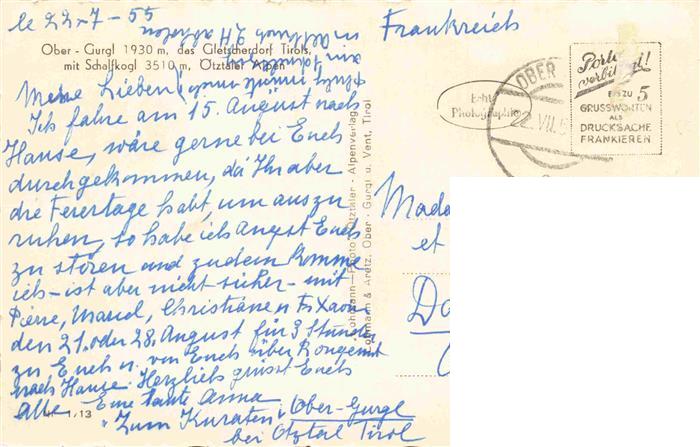 le 22-7-55
Ober - Gurgl 1930 m, das Gletscherdorf Tirols,
mit Schalfkogl 3510 m, Ötztaler Alpen
Meine Lieben!
Ich fahre am 15. August nach
Hause, wäre gerne bei Euch
durchgekommen, da Ihr aber
die Feiertage habt, um auszu
ruhen, so habe ich Angst Euch
zu stören und zudem komme
ich - ist aber nicht sicher - mit
Pierre, Marcel, Christiane u Fr Xaver
den 21. oder 28. August für 3 Stunden
zu Euch u. von Euch über Rougemt
nach Hause. Herzlich grüsst Euch
Alle Eure tante Anna
1/13
"Zum Kuraten" Ober-Gurgl
bei Ötztal Tirol
Photo Ötztaler - Alpenverlag
& Aretz, Ober - Gurgl u. Vent, Tirol
Frankreich
Echte
Photographie
OBER
22. VII. 5
Porto
verbilligt!
BIS ZU 5
GRUSSWORTEN
ALS
DRUCKSACHE
FRANKIEREN
Mada
et
Do